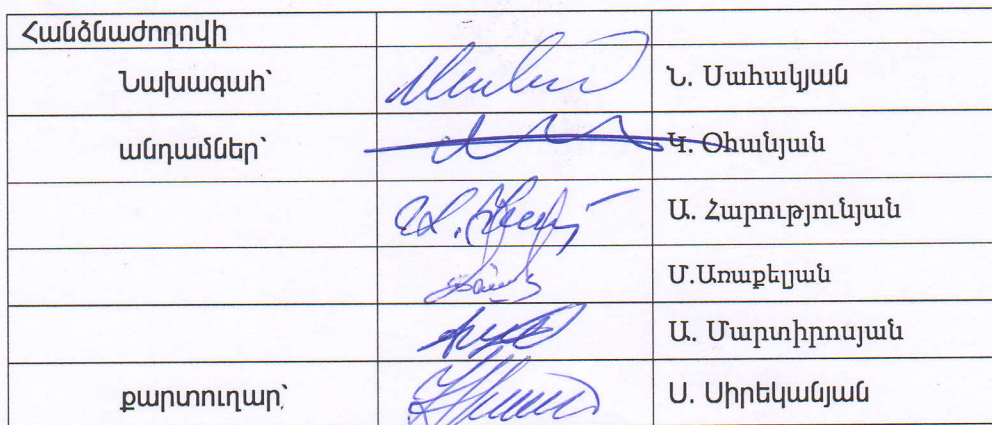 Հանձնաժողովի
Նախագահ՝ Ն. Սահակյան
անդամներ՝ Կ. Օհանյան
Ա. Հարությունյան
Մ.Առաքելյան
Ա. Մարտիրոսյան
քարտուղար՝ Ս. Սիրեկանյան